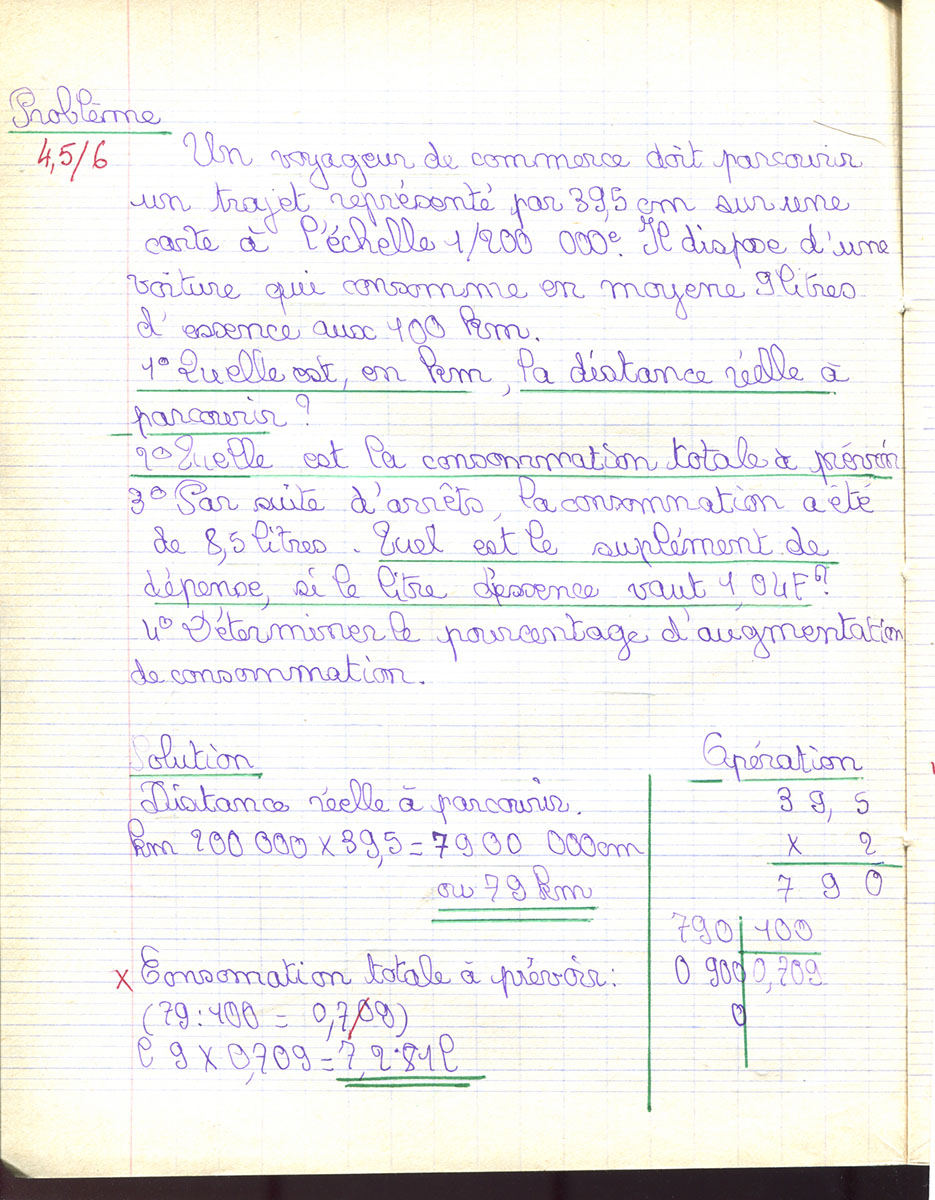 Problème
4,5/6
Un voyageur de commerce doit parcourir
un trajet représenté par 39,5 cm sur une
carte à l'échelle 1/200 000e. Il dispose d'une
voiture qui consomme en moyene 9 litres
d'essence aux 100 km.
1º Quelle est, en km, la distance réelle à
parcourir?
2º Quelle est la consommation totale à prévoir
3º Par suite d'arrêts, la consommation a été
de 8,5 litres. Quel est le suplément de
dépense, si le litre d'essence vaut 1,04F?
4º Déterminer le pourcentage d'augmentation
de consommation.
Solution
Distance réelle à parcourir.
km 200 000 x 39,5 = 7900 000cm
ou 79 km
x Consomation totale à prévoir:
(79:100 = 0,709)
l 9 x 0,709 = 7,281l
Opération
39,5
x 2
790
790 100
0 900 0,709
0